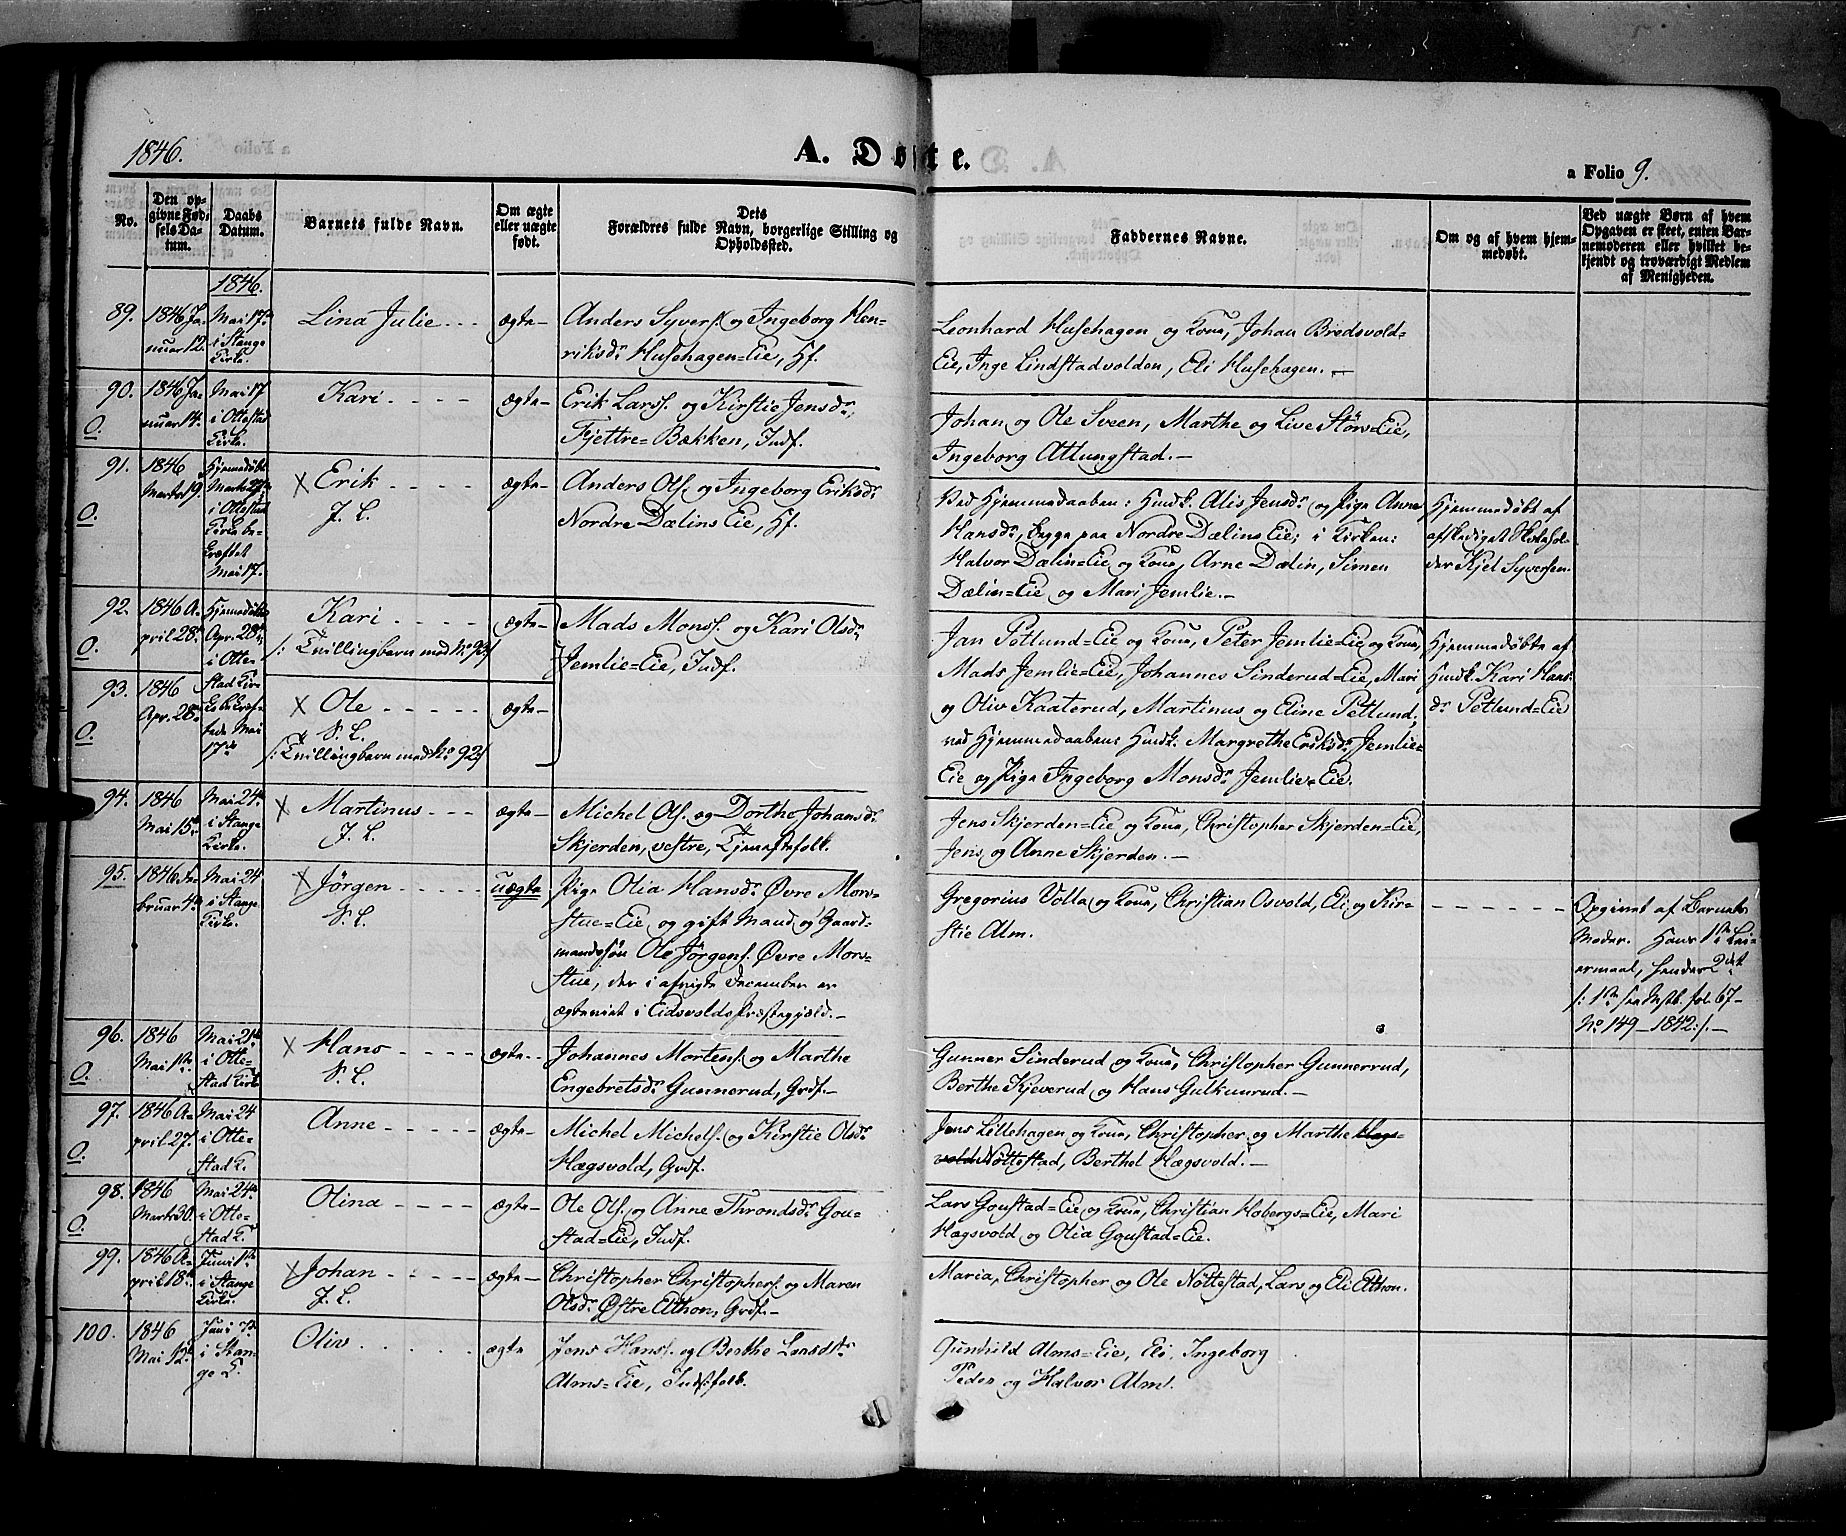 1846.
A. Døbte.
a Folio 9.
No.
Den op-
givne Fød-
sels Da-
tum.
Daabs
Datum.
Barnets fulde Navn.
Om ægte
eller uægte
født.
Dets
Forældres fulde Navn, borgerlige Stilling og
Opholdssted.
Faddernes Navne.
Om og af hvem hjem-
medøbt.
Ved uægte Børn af hvem
Opgaven er skeet, enten Bar-
nemoderen eller hvilket be-
kjendt og troværdigt Medlem
af Menigheden.
1846.
89.
1846 Ja-
nuar 12.
Mai 17de
i Stange
Kirke.
Lina Julie
ægte
Anders Syvers. og Ingeborg Hen-
riksdr. Husehagen=Eie, Hf.
Leonhard Husehagen og Kone, Johan Bredsvold=
Eie, Inge Lindstadvolden, Eli Husehagen.
90.
O.
1846 Ja-
nuar 14.
Mai 17
i Ottestad
Kirke.
Kari
ægte
Erik Larss. og Kirstie Jensdr.
Fjettre=Bækken, Indf.
Johan og Ole Sveen, Marthe og Live Störs=Eie,
Ingeborg Attungstad.
91.
O.
1846
Marts 19.
Hjemmedøbt
Marts 27de
i Ottestad
Kirke be-
kræftet
Mai 17.
X Erik
J. L.
ægte
Anders Ols. og Ingeborg Eriksdr.
Nordre Dælins Eie, Hf.
Ved Hjemmedaaben: Huusk. Alis Jensdr. og Pige Anne
Hansdr., begge paa Nordre Dælins Eie; i Kirken:
Halvor Dælin=Eie og Kone, Arne Dælin, Simen
Dælin=Eie og Mari Jemlie.
Hjemmedøbt af
afskediget Skolehol-
der Kjel Syversen
92.
O.
1846 A-
pril 28de
Hjemmedøbte
Apr. 28de
i Otte-
Kari
/: Tvillingbarn med No 93 :/
ægte
Mads Monss. og Kari Olsdr.
Jemlie=Eie, Indf.
Jan Petlund=Eie og Kone, Peter Jemlie=Eie og Kone,
Mads Jemlie=Eie, Johannes Sinderud=Eie, Mari
og Oliv Kaaterud, Martinus og Eline Petlund;
ved Hjemmedaaben: Huusk. Margrethe Eriksdr. Jemlie=
Eie og Pige Ingeborg Monsdr. Jemlie=Eie.
Hjemmedøbte af
Huusk. Kari Hans-
dr. Petlund=Eie
93.
O.
1846
Apr. 28de
stad Kirke
bekræf-
tede Mai
17de
X Ole
S. L.
/: Tvillingbarn med No 92 :/
ægte
94.
1846
Mai 15de
Mai 24de
i Stange
Kirke.
X Martinus
J. L.
ægte
Michel Ols. og Dorthe Johansdr.
Skjerden, vestre, Tjenestefolk.
Jens Skjerden=Eie og Kone, Christopher Skjerden=Eie,
Jens og Anne Skjerden.
95.
1846 Fe-
bruar 4de
Mai 24
i Stange
Kirke.
X Jörgen
S. L.
uægte
Pige Olia Hansdr. Øvre Mors-
stue=Eie og gift Mand og Gaard-
mandssön Ole Jörgens. Øvre Mors-
stue, der i afvigte December er
ægteviet i Eidsvolds Præstegjæld.
Gregorius Volla og Kone, Christian Osvold, Eli og Kir-
stie Alm.
Opgivet af Barnets
Moder. Hans 1ste Lei-
ermaal, hendes 2det
/: 1ste sea Mstb. fol. 67-
No 149 - 1842 :/
96.
O.
1846
Mai 1ste
Mai 24de
i Otte-
stad Kirke
X Hans
S. L.
ægte
Johannes Mortens. og Marthe
Engebretsdr. Gunnerud, Grdf.
Gunner Sinderud og Kone, Christopher Gunnerud,
Berthe Kjeverud og Hans Gulkunrud.
97.
O.
1846 A-
pril 27.
Mai 24
i Otte-
stad K.
Anne
ægte
Michel Michels. og Kirstie Olsdr.
Hægsvold, Grdf.
Jens Lillehagen og Kone, Christopher og Marthe Hægs-
vold Nöttestad, Berthel Hægsvold.
98.
O.
1846
Marts 30.
Mai 24de
i Otte-
stad K.
Olina
ægte
Ole Ols. og Anne Throndsdr. Gou-
stad=Eie, Indf.
Lars Goustad=Eie og Kone, Christian Hobergs=Eie, Mari
Hægsvold og Olia Goustad=Eie.
99.
1846 A-
pril 18de
Juni 1ste
i Stange
Kirke.
X Johan
J. L.
ægte
Christopher Christophers. og Maren
Olsdr. Østre Athon, Grdf.
Maria, Christopher og Ole Nöttestad, Lars og Eli Athon.
100.
1846
Mai 12te
Juni 7de
i Stan-
ge K.
Oliv
ægte
Jens Hanss. og Berthe Larsdtr.
Alms=Eie, Indsfolk.
Gunhild Alms=Eie, Eli, Ingeborg
Peder og Halvor Alm.